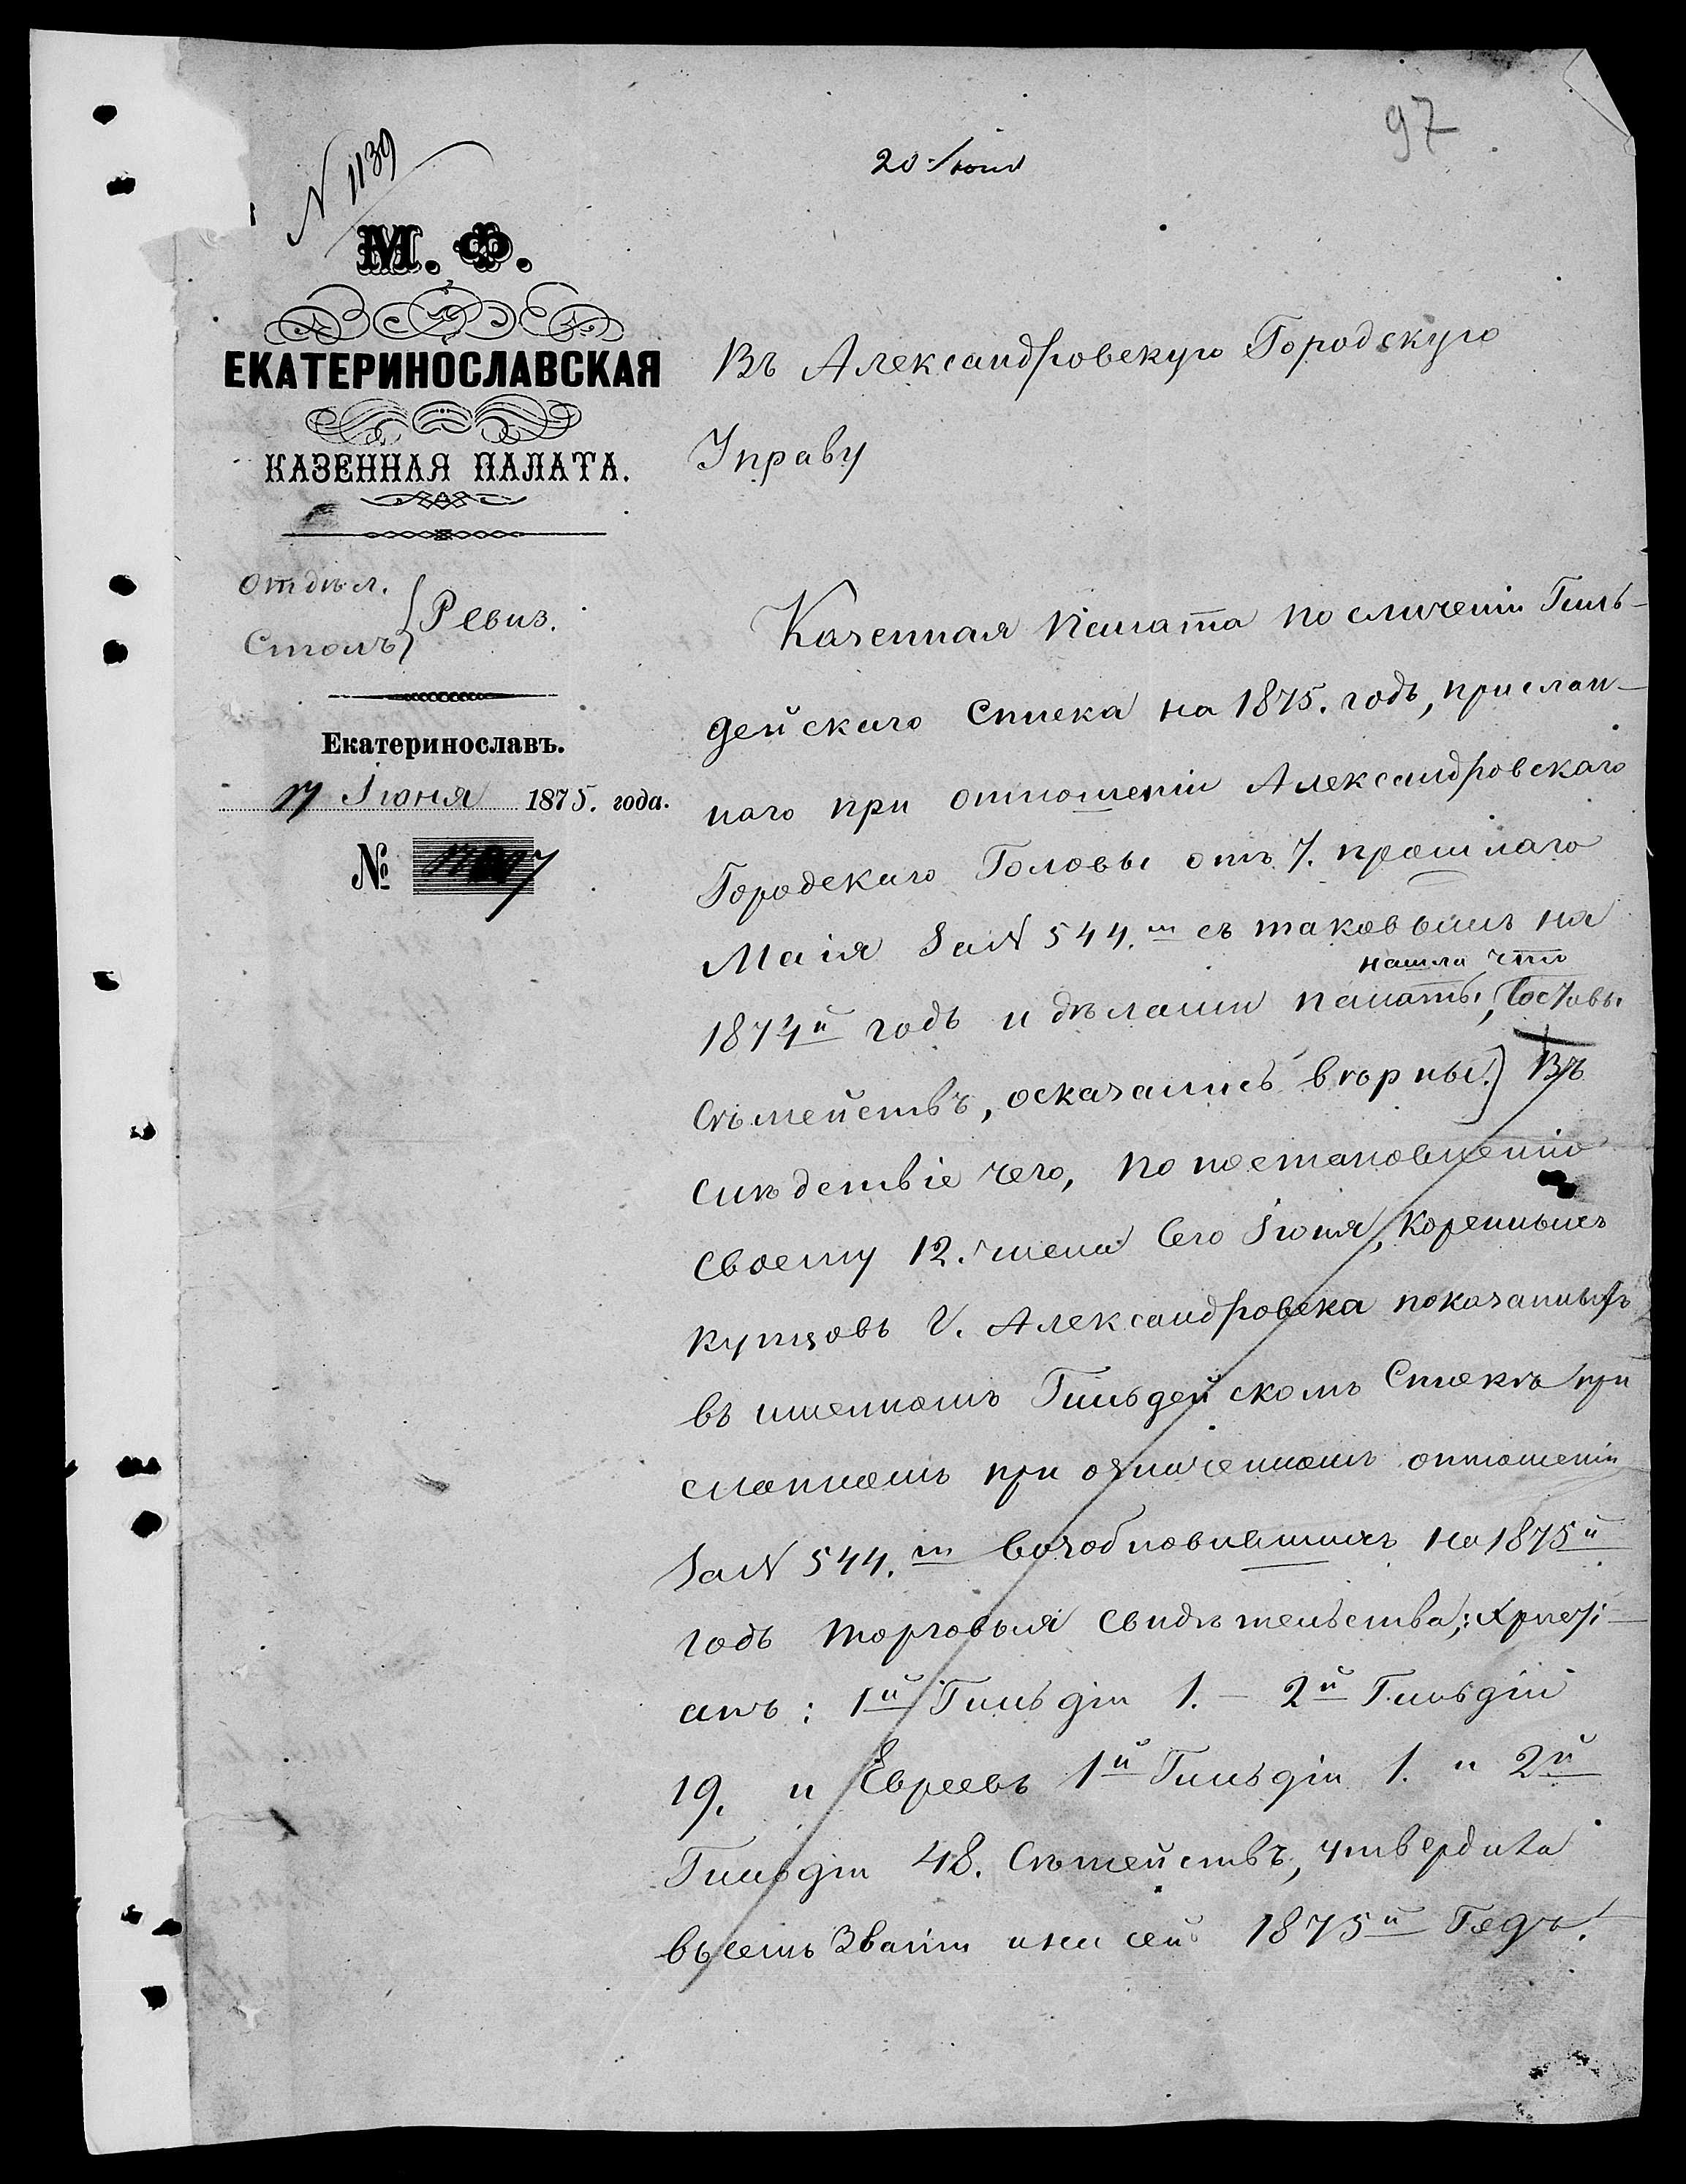 97
20 Іюня
N 1139
М. Ф.
ЕКАТЕРИНОСЛАВСКАЯ
КАЗЕННАЯ ПАЛАТА.
Отдѣл.
Столъ
Ревиз.
Екатеринославъ.
17 Іюня 1875. года.
№
Въ Александровскую Городскую
Управу
Казенная Палата по сличеніи Гиль-
дейскаго Списка на 1875. годъ, прислан-
наго при отношеніи Александровскаго
Городскаго Головы отъ 7. прошлаго
Маія за N 544.м съ таковымъ на
нашла что
1874й годъ и дѣлами палаты, (составы
Сѣмействъ, оказались вѣрны.) Въ
слѣдствіе чего, по постановленію
своему 12. числа Сего Іюня, коренныхъ
купцовъ г. Александровска показанныхъ
въ именномъ Гильдейскомъ Спискѣ при
сланномъ при означенномъ отношеніи
за N 544.м возобновившихъ на 1875й
годъ торговыя свидѣтельства; Христі-
анъ: 1й Гильдіи 1. – 2й Гильдіи
19. и Евреевъ 1й Гильдіи 1. и 2й
Гильдіи 48. Сѣмействъ, утвердила
въ семъ Званіи на сей 1875й Годъ.